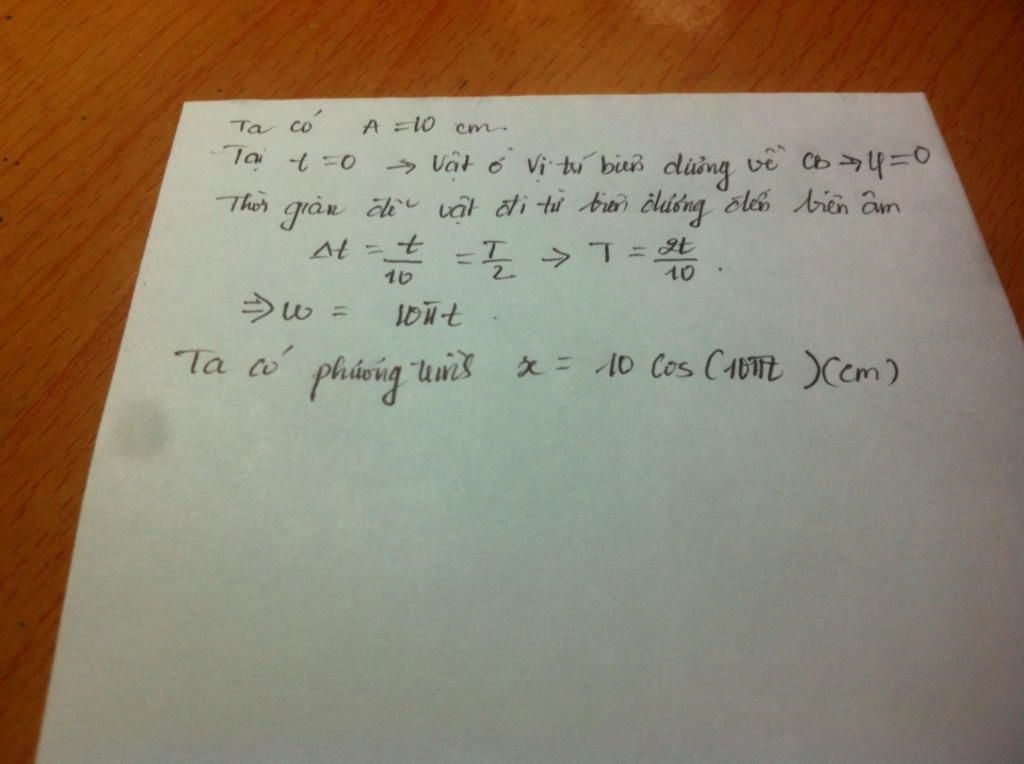 Ta có A = 10 cm.
Tại t = 0 → Vật ở vị trí biên dương về CB → φ = 0
Thời gian để vật đi từ biên dương đến biên âm
Δt = t/10 = T/2 → T = 2t/10.
⇒ ω = 10πt.
Ta có phương trình x = 10 cos(10πt)(cm)